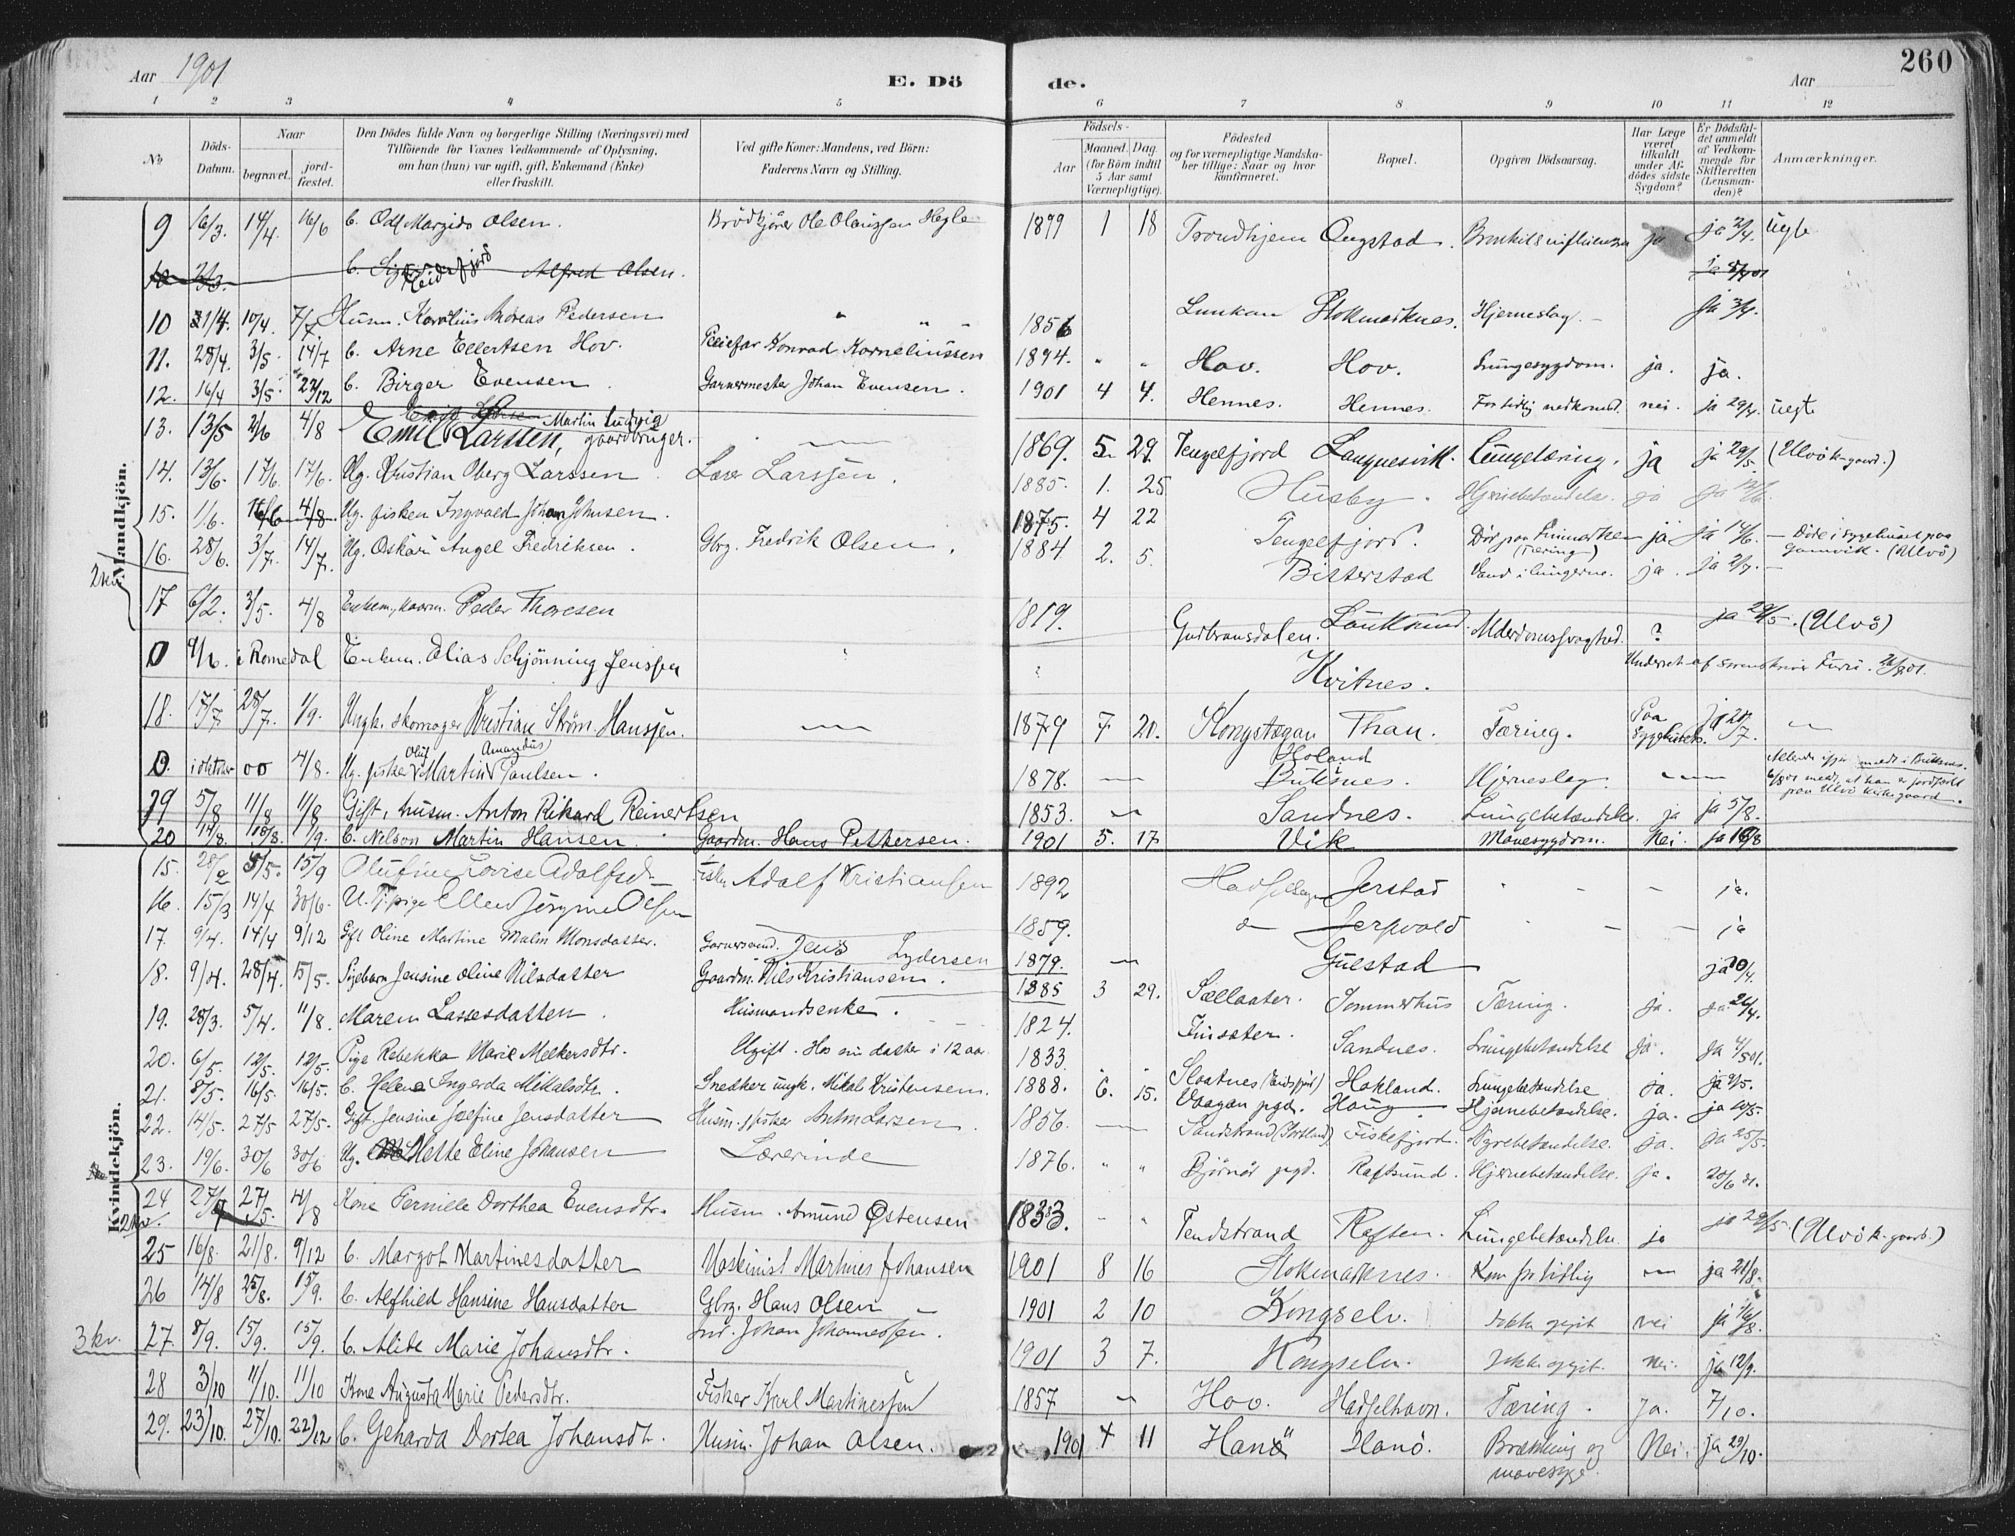 260
Aar 1901 E. Dö
de. Aar
1 2 3 4 5 6 7 8 9 10 11 12
No
Döds-Datum.
Naar
begravet. jord-fæstet.
Den Dödes fulde Navn og borgerlige Stilling (Næringsvei) med
Tilföiende för Voxnes Vedkommende af Oplysning,
om han (hun) var ugift, gift, Enkemand (Enke)
eller fraskilt.
Ved gifte Koner: Mandens, ved Börn:
Faderens Navn og Stilling.
Födsels-
Aar Maaned. Dag.
(for Börn indtil 5 Aar samt Værnepligtige).
Födested
og for værnepligtige Mandska-
ber tillige: Naar og hvor
konfirmeret.
Bopæl.
Opgiven Dödsaarsag.
Har Læge været tilkaldt under Af-dödes sidste Sygdom?
Er Dödsfal-det anmeldt af Vedkom-mende för Skifteretten (Lensman-den)?
Anmærkninger.
Mandkjön.
9 16/3. 14/4 16/6 b. Odd Margido Olsen. Brödkjörer Ole Olaussen Hegle 1899 1 18 Trondhjem Ongstad. ja ja 2/4. uegte
b. Alfred Olsen.
10 10/4. 7/7 Husm. Karolius Andreas Pedersen 1856 Lunkan Stokmarknes. Hjerneslag. ja 3/4.
11. 28/4. 3/5. 14/7 b. Arne Ellertsen Hov. Pleiefar Konrad Korneliussen 1894. Hov. Hov. Lungesygdom. ja. ja.
12. 16/4 3/5. 22/12 b. Birger Evensen. Garvermester Johan Evensen. 1901 4 4. Hennes. Hennes. For tidlig nedkomst. nei. ja 29/4. uegt
13. 13/5 2/6 4/8 Emil Martin Ludvig Larssen, gaardbruger. 1869. 5. 29. Tengelfjord Langnesvik. Lungetæring. ja ja 29/5. (Ulvö k-gaard.)
14. 13/6. 17/6. 17/6. Ug. Kristian Oberg Larssen. Laser Larssen. 1885. 1. 25 Husby. Hjernebetændelse. ja ja 14/6.
15. 1/6. 16/6 4/8 Ug. fisker Ingvald Johan Johnsen. 1875. 4 22 Tengelfjord. Död paa Finmarken (Tæring) ja ja 14/6. Döde i sygehuset paa Gamvik. (Ulvö)
16. 28/6. 3/7. 14/7. Ug. Oskar Angel Fredriksen. Gbrg. Fredrik Olsen. 1884 2. 5. Bitterstad Vand i lungerne. ja. ja 2/7.
17 6/2. 3/5. 4/8 Enkem, kaarm. Peder Thoresen 1819. Gudbransdalen. Alderdomssvaghed. ? ja 29/5. (Ulvö)
0 9/6. i Romedal Enkem. Elias Schjönning Jenssen Kvitnes. Underret. af sorenskriver
18. 17/7. 28/7. 1/9. Ungk. skomager Kristian Ström Hanssen. 1879 7 20. Kongstegan Than. Tæring. Paa Sygehuset. ja 20/7
0. i oktober 00 4/8. Ug. fisker Oluf Martin Amandus Paulsen. 1878. Holand Buksnes. Hjerneslag.
19 5/8 11/8 11/8 Gift, husm. Anton Rikard Reinertsen 1853. Sandnes. Lungebetændelse. ja ja 5/8.
20 14/8. 1/9. b. Nelson Martin Hansen. Gaardm. Hans Pettersen. 1901 5. 17 Vik Mavesygdom. Nei. ja 16/8
Kvindekjön.
15. 28/2 5/5. 15/9 Olufine Lovise Adolfsd. Fisker Adolf Kristiansen 1892 Hadsel Jerstad ja.
16. 15/3 14/4 30/6. U. T. pige Ellen Jörgine Olsen 1859. Jerpvold ja
17. 9/4. 14/4 9/12 Gft Oline Martine Malm Monsdatter. Garversvend. Jens Lydersen 1879. Guestad ja 20/4.
18. 9/4. 28/4. 15/5. Pigebarn Jensine Oline Nilsdatter Gaardm. Nils Kristiansen. 1885 3 29. Sællaater. Sommerhus Tæring. ja. ja 26/4.
19. 28/3. 5/4. 11/8. Maren Lassesdatter. Husmandsenke. 1824. Finsæter. Sandnes. Lungebetændelse ja. ja 4/5 01.
20. 6/5. 12/5. 12/5. Pige Rebekka Marie Melkersdtr. Ugift. Hos min datter i 12 aar. 1833.
21. 8/5. 16/5. 16/5. b. Helena Ingerda Mikalsdtr. Snedker ungk. Mikal Kristensen. 1888. 6. 15. Slaatnes Hokland. Lungebetændelse ja. ja 9/5.
22. 14/5. 27/5 27/5. Gift. Jensine Josefine Jensdatter Husm. fisker Anton Larsen. 1856. Vaagan pgd. Haug Hjernebetændelse. ja. ja 20/5.
Sandstrand Fiskefjord. Nyrebetændelse. ja. ja 25/5.
23. 19/6. 30/6 30/6 Ug. Mette Eline Johansen Lærerinde 1876. Björnör pgd. Raftsund. Hjernebetændelse. ja. 20/6 01.
24 27/5. 4/8 Kone Pernille Dorthea Evensdtr. Husm. Amund Östensen 1833. Tendstrand Raften. Lungebetændelse. ja ja 29/5. (Ulvö k-gaard.)
25 16/8. 21/8. 9/12 b. Margot Martinesdatter Maskinist Martines Johansen 1901 8 16 Stokmarknes. Kom for tidlig ja 21/8.
26 14/8 25/8. 15/9. b. Alfhild Hansine Hansdatter Gbrg. Hans Olsen 1901 2 10 Kongselv. Ikke opgit nei ja 16/8.
3 kv.
27. 8/9. 15/9. 15/9. b. Alide Marie Johansdtr. Johan Johannessen. 1901 3 7. Kongselv. Ikke opgit. Nei. ja 12/9.
28 3/10 11/10. 11/10 Kone Augusta Marie Pedersdtr. Fisker Karl Martinessen 1857 Hov. Hadselhavn. Tæring. Ja. 7/10.
29. 23/10. 27/10. 22/12 b. Geharda Dortea Johansdt. Husm. Johan Olsen. 1901 4 11 Hanö Hanö. Brækning og mavesyge. Nei. ja 29/10.